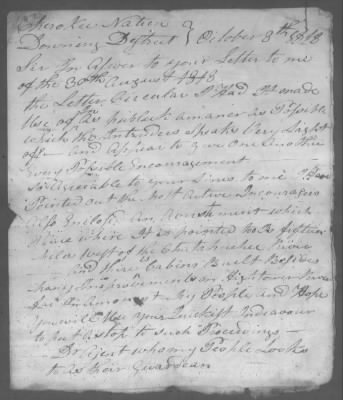 Cherokee Nation
Downing District } October 8th 1818
Sir In Answer to your Letter to me
of the 30th August 1818
the Letter Circular I Had it made
Use of in as publick a maner as Posable
which the intrudees speaks Very Light
off and Appear to give One Another
Every Posable Encouragement
to your Lines to me I
Pointed out the Most Active Incouragers
Also Inclosd an which
where It is pointed to a fifteen
Miles West of the Chattahuchee River
and there is Cabins Built Besides
Improvements on Hightower River
in Amongst My People and Hope
you will Use your Quickist Indeavour
to put a stop to such Proceedings —
Dr Agent whom my People Looks
to as their Guardean